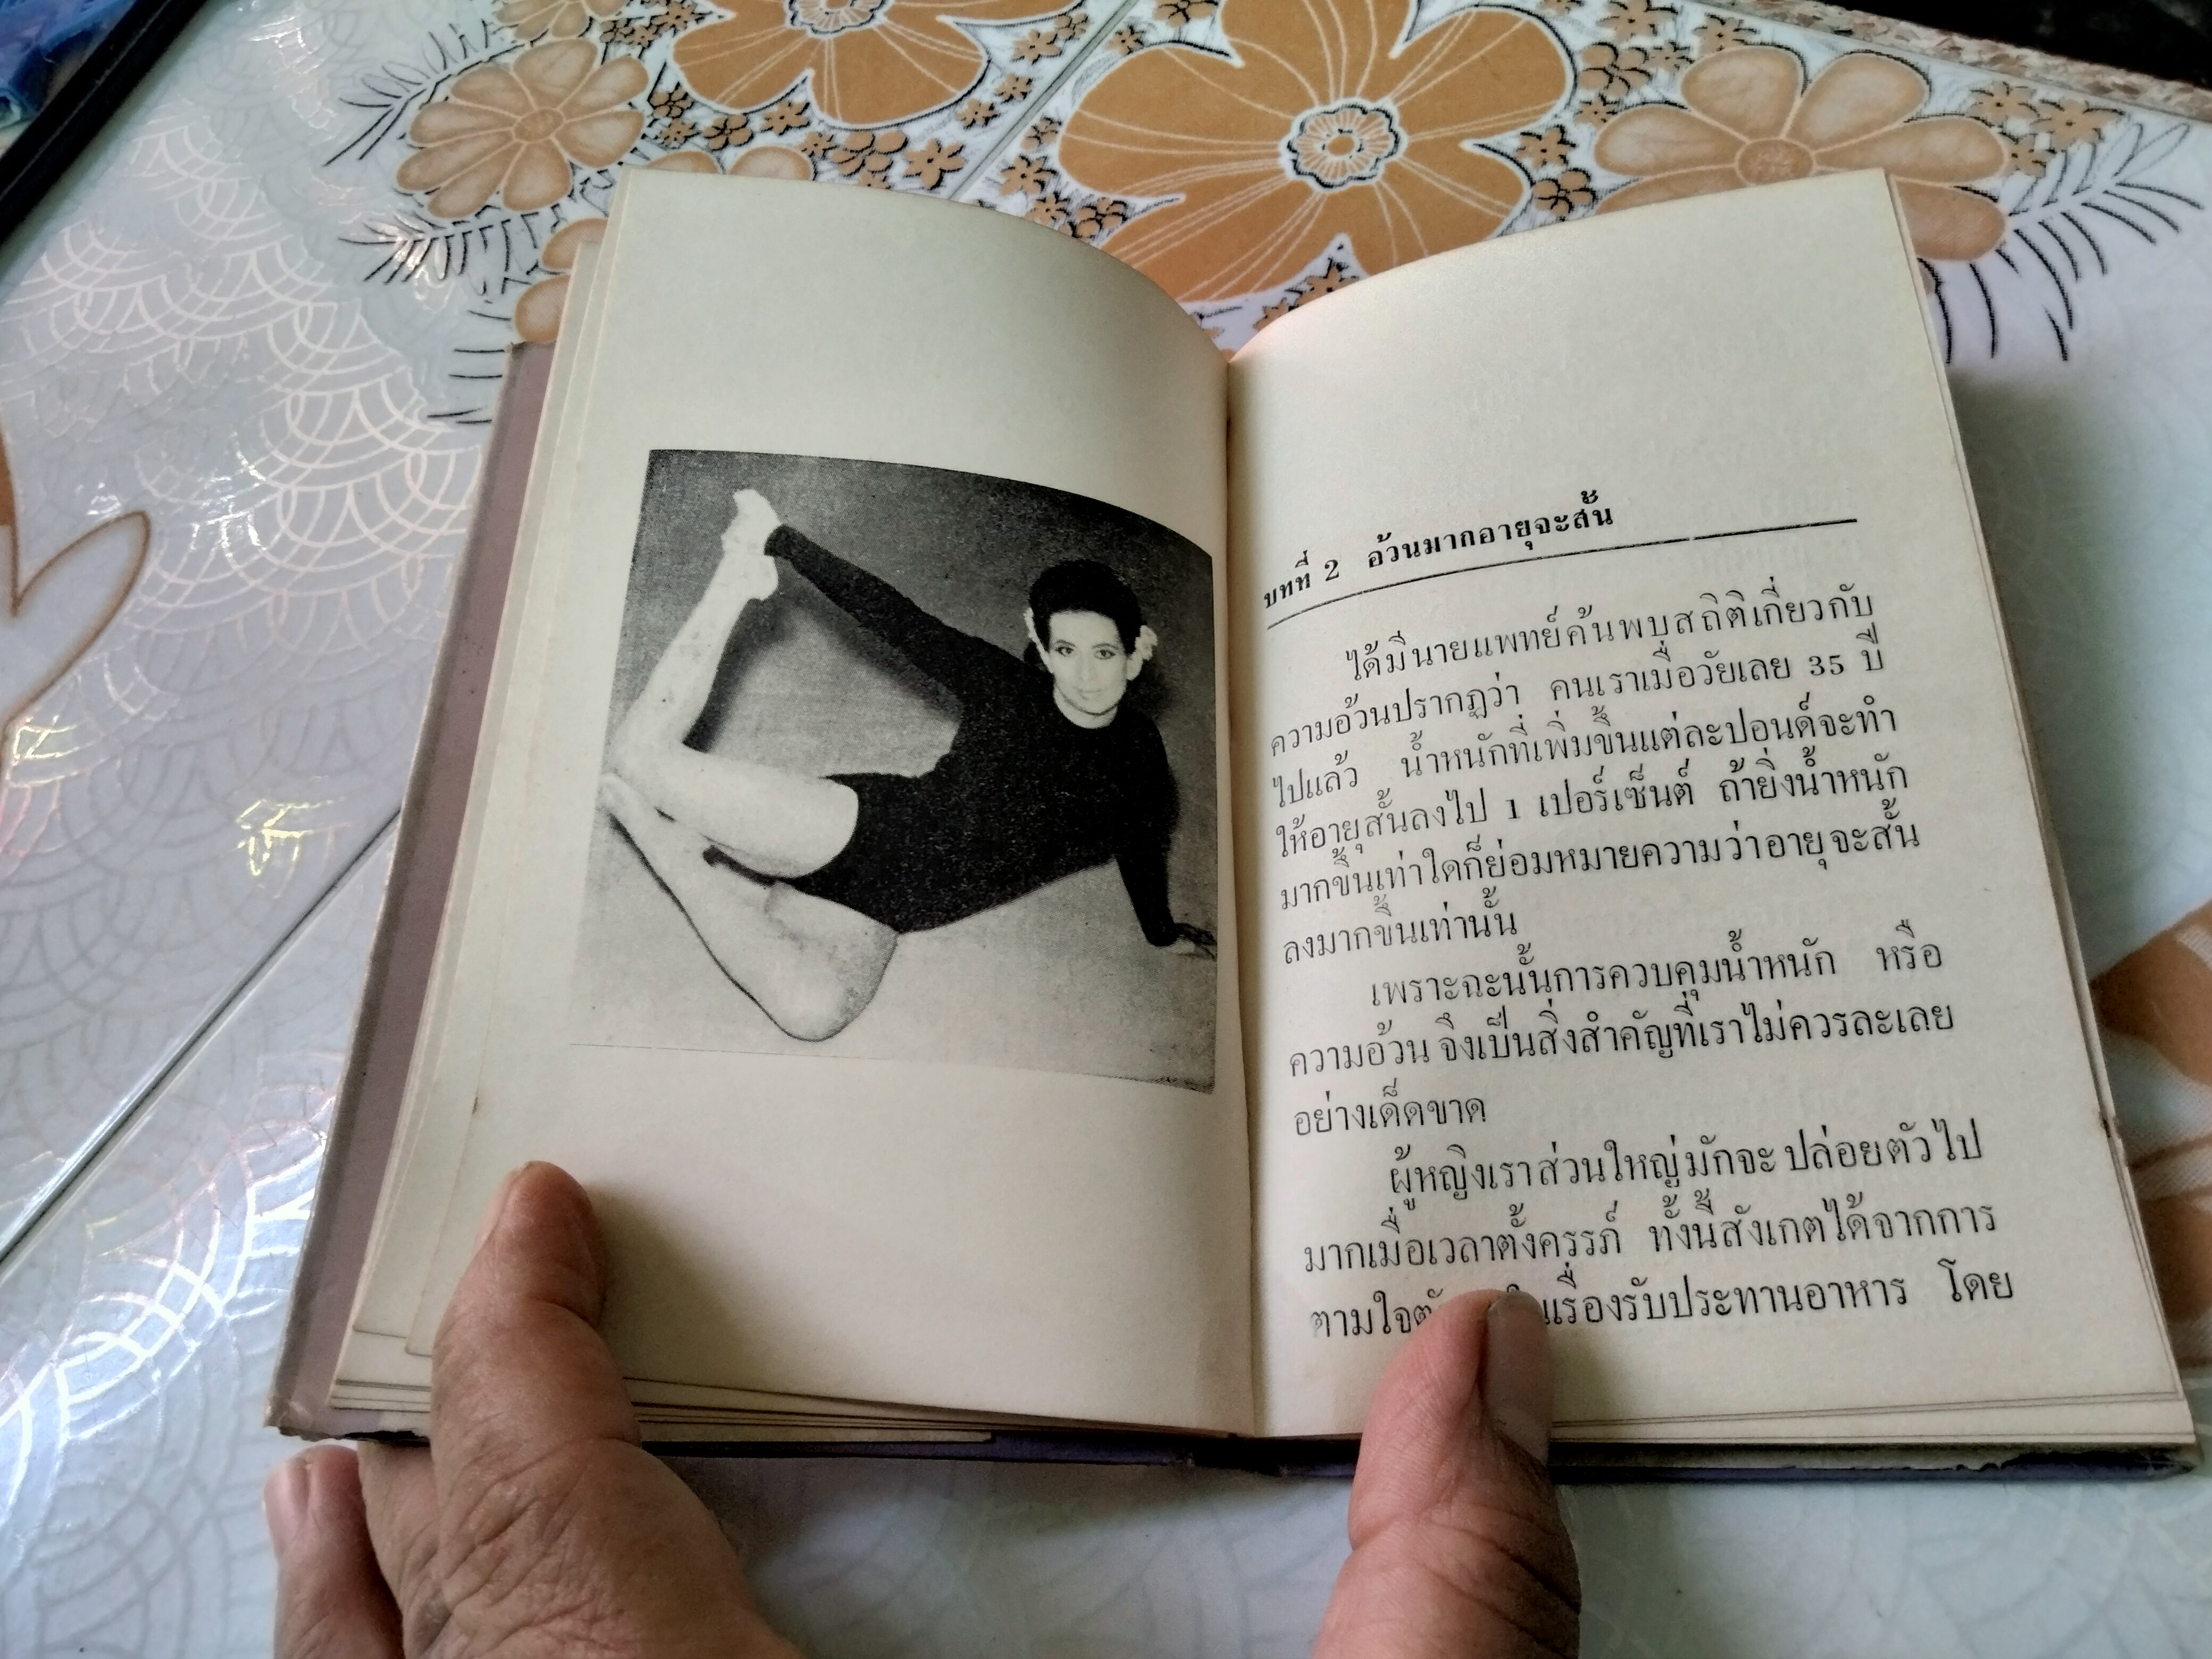 บทที่ 2 อ้วนมากอายุจะสั้น
ได้มีนายแพทย์ค้นพบสถิติเกี่ยวกับ
ความอ้วนปรากฏว่า คนเราเมื่อวัยเลย 35 ปี
ไปแล้ว น้ำหนักที่เพิ่มขึ้นแต่ละปอนด์จะทำ
ให้อายุสั้นลงไป 1 เปอร์เซ็นต์ ถ้ายิ่งน้ำหนัก
มากขึ้นเท่าใดก็ย่อมหมายความว่าอายุจะสั้น
ลงมากขึ้นเท่านั้น
เพราะฉะนั้นการควบคุมน้ำหนัก หรือ
ความอ้วน จึงเป็นสิ่งสำคัญที่เราไม่ควรละเลย
อย่างเด็ดขาด
ผู้หญิงเราส่วนใหญ่มักจะปล่อยตัวไป
มากเมื่อเวลาตั้งครรภ์ ทั้งนี้สังเกตได้จากการ
ตามใจ เรื่องรับประทานอาหาร โดย